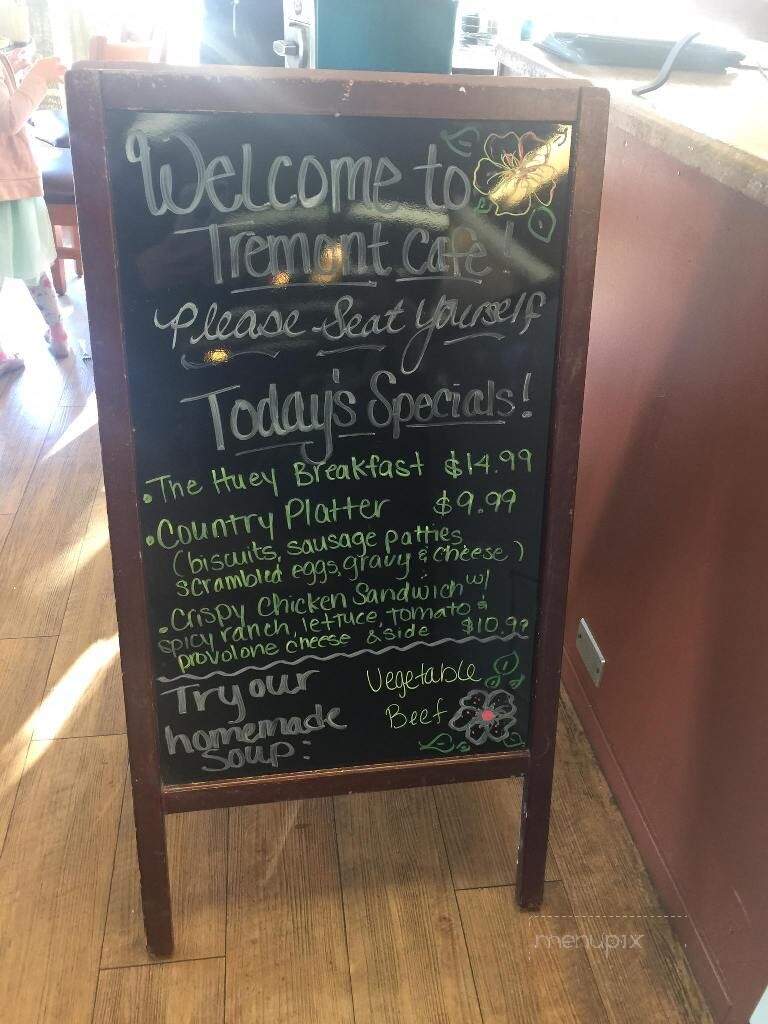 Welcome to
Tremont Cafe!
Please Seat Yourself
Today's Specials!
• The Huey Breakfast $14.99
• Country Platter $9.99
(biscuits, sausage patties,
scrambled eggs, gravy & cheese)
• Crispy Chicken Sandwich w/
spicy ranch, lettuce, tomato &
provolone cheese & side $10.99
Try our
homemade
soup:
Vegetable
Beef
menupix